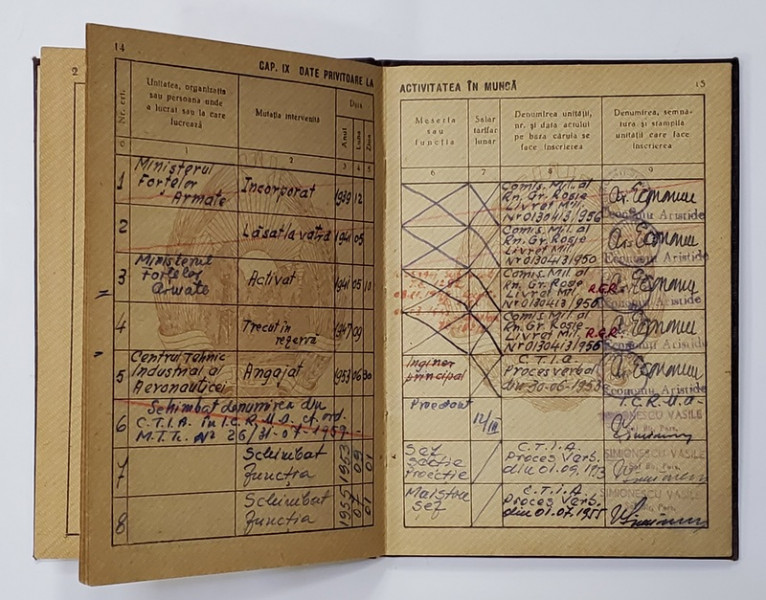 2
14
CAP. IX DATE PRIVITOARE LA
Nr. crt.
Unitatea, organizația
sau persoana unde
a lucrat sau la care
lucrează
Mutația intervenită
Data
Anul
Luna
Ziua
0
1
2
3
4
5
1
Ministerul
Forțelor
Armate
Incorporat
1939
12
2
Lăsat la vatră
1941
05
3
Ministerul
Forțelor
Armate
Activat
1941
05
10
4
Trecut în
rezervă
1947
09
5
Centrul Tehnic
Industrial al
Aeronauticei
Angajat
1953
06
30
6
Schimbat denumirea din
C.T.I.A. în I.C.R.M.A. cf. ord.
M.T.Tc. Nº 26/31-07-1959
7
Schimbat
funcția
1953
09
01
8
Schimbat
funcția
1955
07
01
ACTIVITATEA ÎN MUNCĂ
15
Meseria
sau
funcția
Salar
tarifar
lunar
Denumirea unității,
nr. și data actului
pe baza căruia se
face înscrierea
Denumirea, semnă-
tura și ștampila
unității care face
înscrierea
6
7
8
9
Comis. Mil. al
Rn. Gr. Roșie
Livret Mil.
Nr 0130413/956
Economu Aristide
Comis. Mil. al
Rn. Gr. Roșie
Livret Mil.
Nr 0130413/950
Economu Aristide
Comis. Mil. al
Rn. Gr. Roșie
Livret Mil. R.P.R.
Nr 0130413/950
Economu Aristide
Comis. Mil. al
Rn. Gr. Roșie
Livret Mil. R.P.R.
Nr 0130413/956
Economu Aristide
Inginer
principal
C.T.I.A.
Proces verbal
din 30-06-1953
Economu Aristide
Proectant
12/III
I.C.R.M.A.
SIMIONESCU VASILE
Șef
secție
Proecție
C.T.I.A.
Proces Verb.
din 01.09.1953
SIMIONESCU VASILE
Maistru
șef
C.T.I.A.
Proces Verb.
din 01.07.1955
SIMIONESCU VASILE